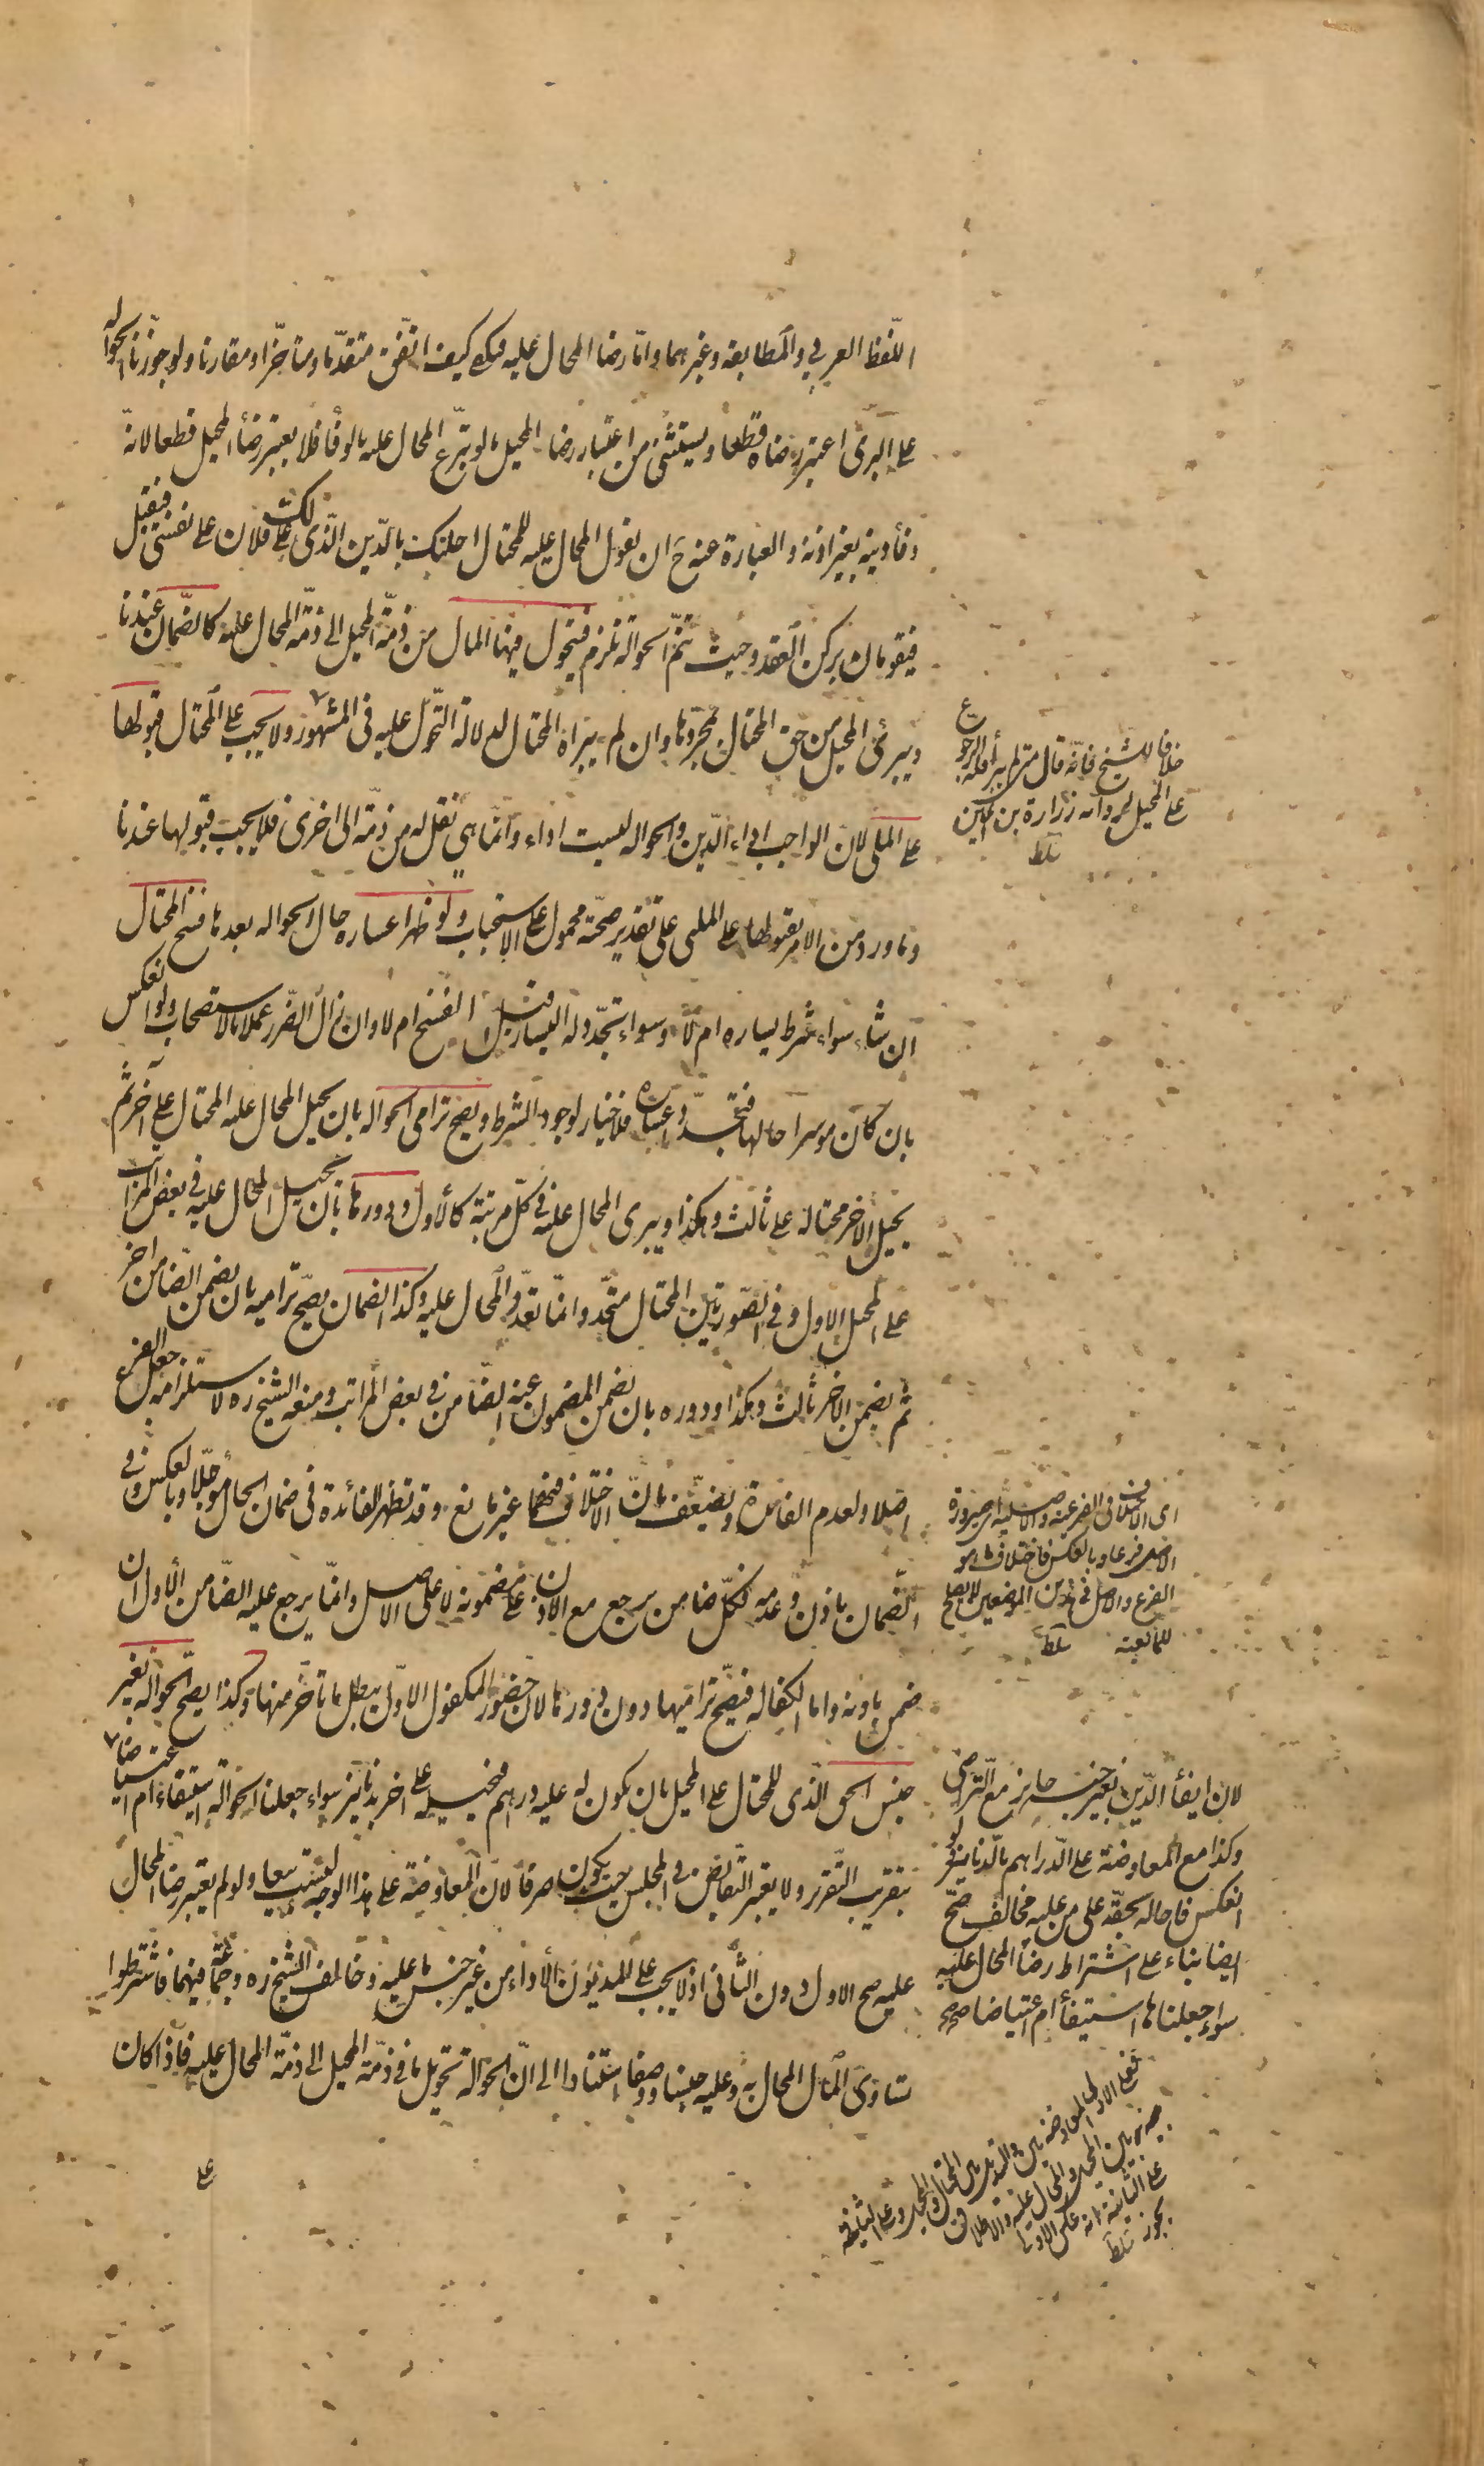 اللّفظ العربي والمطابقة وغيرهما واما رضا المحال عليه فيكفي كيف اتّفق متقدّما ومتأخّرا ومقارنا ولو جوّزنا الحوالة
على البرئ اعتبر رضاه قطعا ويستثنى من اعتبار رضا المحيل ما لو تبرّع المحال عليه بالوفأ فلا يعتبر رضأ المحيل قطعا لانّه
وفأ دينه بغير اذنه والعبارة عنه ح ان يقول المحال عليه للمحتال احلتك بالدّين الّذى لك على فلان على نفسى فيقبل
فيقومان بركن العقد وحيث تتمّ الحوالة تلزم فيتحوّل فيها المال من ذمّة المحيل الى ذمّة المحال عليه كالضّمان عندنا
ويبرئ المحيل من حق المحتال بمجرّدها وان لم يبراه المحتال لدلالة التّحوّل عليه فى المشهور ولا يجب على المحتال قبولها
على الملى لان الواجب اداء الدّين والحواله ليست اداء وانّما هى نقل له من ذمّة الى اخرى فلا يجب قبولها عندنا
وما ورد من الامر بقبولها على الملى على تقدير صحّته محمول على الاستحباب ولو ظهر اعساره حال الحواله بعدها فسخ المحتال
ان شاء سواء شرط يساره ام لا وسواء تجدّد له اليسار قبل الفسخ ام لا وان زال الضّرر عملا بالاستصحاب ولو انعكس
بان كان موسرا حالها فتجدّد اعساره فلا خيار لوجود الشرط ويصح ترامى الحواله بان يحيل المحال عليه المحتال على آخر ثم
يحيل الاخر محتاله على ثالث وهكذا ويبرى المحال عليه فى كلّ مرتبة كالأول ودورها بان يحيل المحال عليه فى بعض المراتب
على المحيل الاول وفى الصّورتين المحتال متّحد وانّما تعدّد المحال عليه وكذا الضمان يصحّ تراميه بان يضمن الضّامن اخر
ثم يضمن الاخر ثالث وهكذا ودوره بان يضمن المضمون عنه الضّامن فى بعض المراتب ومنعه الشيخ ره لاستلزامه جعل الفرع
اصلا ولعدم الفائدة ويضعّف بانّ الاختلاف فيهما غير مانع وقد تظهر الفائدة فى ضمان الحالّ مؤجّلا وبالعكس وفى
الضّمان باذن وعدمه فكلّ ضامن يرجع مع الاذن على مضمونه لا على الاصل وانّما يرجع عليه الضّامن الأول ان
ضمن باذنه واما الكفاله فيصحّ تراميها دون دورها لان حضور المكفول الاوّل يبطل ما تأخّر منها وكذا يصحّ الحواله بغير
جنس الحق الّذى للمحتال على المحيل بان يكون له عليه دراهم فيحيله على اخر بدنانير سواء جعلنا الحوالة استيفاء ام اعتياضا
بتقريب التّقرير ولا يعتبر التّقابض فى المجلس حيث يكون صرفا لان المعاوضة على هذا الوجه ليست بيعا ولو لم يعتبر رضا المحال
عليه صح الاول دون الثّانى اذ لا يجب على المديون الأداء من غير جنس ما عليه وخالف الشيخ ره وجماعة فيهما فاشترطوا
تساوى المال المحال به وعليه جنسا ووصفا استنادا الى انّ الحوالة تحويل ما فى ذمّة المحيل الى ذمّة المحال عليه فاذا كان
على
خلافا للشيخ فانّه قال متى لم يبرأ فله الرجوع
على المحيل لرواية زرارة بن اعين
سلط
اى الاختلاف فى الفرعية والاصلية اى صيرورة
الاصل فرعا وبالعكس فاختلافهما هو
الفرع والاصل فى هذين الموضعين لا يصلح
للمانعية سلط
لان ايفأ الدّين بغير جنسه جايز مع التراضى
وكذا مع المعاوضة على الدّراهم بالدّنانير ولو
انعكس فاحاله بحقّه على من عليه مخالف صحّ
ايضا بناء على اشتراط رضا المحال عليه
سواء جعلناها استيفأ ام اعتياضا صح